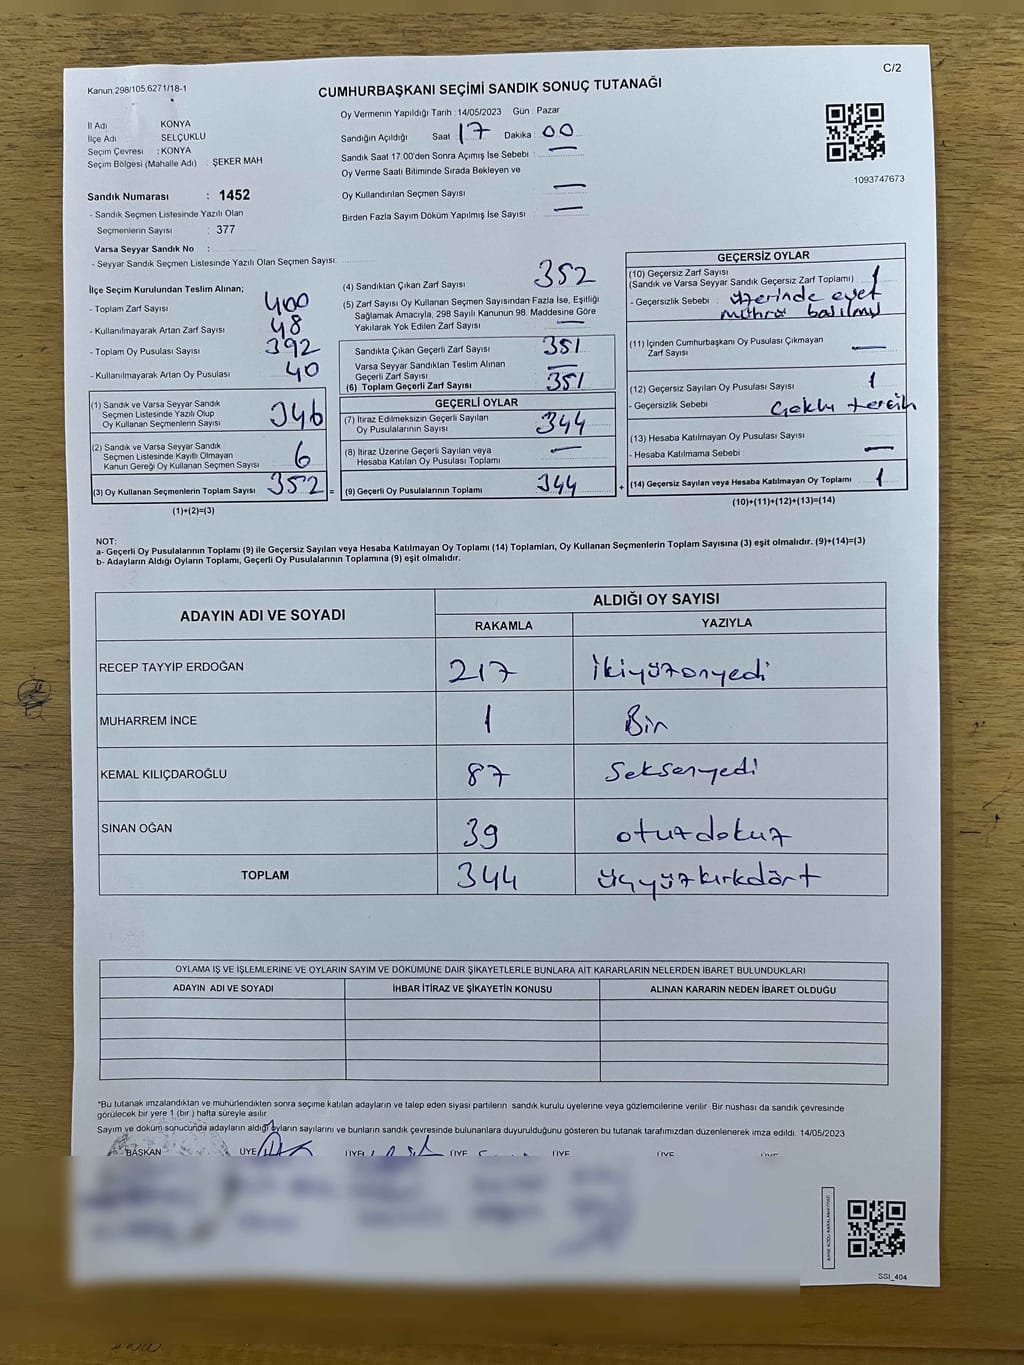 C/2
Kanun,298/105,6271/18-1
CUMHURBAŞKANI SEÇİMİ SANDIK SONUÇ TUTANAĞI
Oy Vermenin Yapıldığı Tarih : 14/05/2023 Gün : Pazar
İl Adı KONYA
İlçe Adı SELÇUKLU
Seçim Çevresi : KONYA
Seçim Bölgesi (Mahalle Adı) : ŞEKER MAH
Sandık Numarası : 1452
- Sandık Seçmen Listesinde Yazılı Olan
Seçmenlerin Sayısı : 377
Varsa Seyyar Sandık No :
- Seyyar Sandık Seçmen Listesinde Yazılı Olan Seçmen Sayısı:
Sandığın Açıldığı Saat 17 Dakika : 00
Sandık Saat 17.00'den Sonra Açımış İse Sebebi : —
Oy Verme Saati Bitiminde Sırada Bekleyen ve
Oy Kullandırılan Seçmen Sayısı —
Birden Fazla Sayım Döküm Yapılmış İse Sayısı —
1093747673
İlçe Seçim Kurulundan Teslim Alınan;
- Toplam Zarf Sayısı 400
- Kullanılmayarak Artan Zarf Sayısı 48
- Toplam Oy Pusulası Sayısı 392
- Kullanılmayarak Artan Oy Pusulası 40
(1) Sandık ve Varsa Seyyar Sandık
Seçmen Listesinde Yazılı Olup
Oy Kullanan Seçmenlerin Sayısı 346
(2) Sandık ve Varsa Seyyar Sandık
Seçmen Listesinde Kayıtlı Olmayan
Kanun Gereği Oy Kullanan Seçmen Sayısı 6
(3) Oy Kullanan Seçmenlerin Toplam Sayısı 352 =
(1)+(2)=(3)
(4) Sandıktan Çıkan Zarf Sayısı 352
(5) Zarf Sayısı Oy Kullanan Seçmen Sayısından Fazla İse, Eşitliği
Sağlamak Amacıyla, 298 Sayılı Kanunun 98. Maddesine Göre
Yakılarak Yok Edilen Zarf Sayısı —
Sandıkta Çıkan Geçerli Zarf Sayısı 351
Varsa Seyyar Sandıktan Teslim Alınan
Geçerli Zarf Sayısı —
(6) Toplam Geçerli Zarf Sayısı 351
GEÇERLİ OYLAR
(7) İtiraz Edilmeksizin Geçerli Sayılan
Oy Pusulalarının Sayısı 344
(8) İtiraz Üzerine Geçerli Sayılan veya
Hesaba Katılan Oy Pusulası Toplamı —
(9) Geçerli Oy Pusulalarının Toplamı 344 +
GEÇERSİZ OYLAR
(10) Geçersiz Zarf Sayısı
(Sandık ve Varsa Seyyar Sandık Geçersiz Zarf Toplamı) 1
- Geçersizlik Sebebi : üzerinde evet
mührü basılmış
(11) İçinden Cumhurbaşkanı Oy Pusulası Çıkmayan
Zarf Sayısı —
(12) Geçersiz Sayılan Oy Pusulası Sayısı 1
- Geçersizlik Sebebi : Çoklu tercih
(13) Hesaba Katılmayan Oy Pusulası Sayısı
- Hesaba Katılmama Sebebi : —
(14) Geçersiz Sayılan veya Hesaba Katılmayan Oy Toplamı 1
(10)+(11)+(12)+(13)=(14)
NOT:
a- Geçerli Oy Pusulalarının Toplamı (9) ile Geçersiz Sayılan veya Hesaba Katılmayan Oy Toplamı (14) Toplamları, Oy Kullanan Seçmenlerin Toplam Sayısına (3) eşit olmalıdır. (9)+(14)=(3)
b- Adayların Aldığı Oyların Toplamı, Geçerli Oy Pusulalarının Toplamına (9) eşit olmalıdır.
ADAYIN ADI VE SOYADI
ALDIĞI OY SAYISI
RAKAMLA YAZIYLA
RECEP TAYYİP ERDOĞAN 217 İkiyüzonyedi
MUHARREM İNCE 1 Bir
KEMAL KILIÇDAROĞLU 87 Seksenyedi
SİNAN OĞAN 39 otuzdokuz
TOPLAM 344 üçyüzkırkdört
OYLAMA İŞ VE İŞLEMLERİNE VE OYLARIN SAYIM VE DÖKÜMÜNE DAİR ŞİKAYETLERLE BUNLARA AİT KARARLARIN NELERDEN İBARET BULUNDUKLARI
ADAYIN ADI VE SOYADI İHBAR İTİRAZ VE ŞİKAYETİN KONUSU ALINAN KARARIN NEDEN İBARET OLDUĞU
*Bu tutanak imzalandıktan ve mühürlendikten sonra seçime katılan adayların ve talep eden siyasi partilerin sandık kurulu üyelerine veya gözlemcilerine verilir. Bir nüshası da sandık çevresinde
görülecek bir yere 1 (bir ) hafta süreyle asılır.
Sayım ve döküm sonucunda adayların aldığı oyların sayılarını ve bunların sandık çevresinde bulunanlara duyurulduğunu gösteren bu tutanak tarafımızdan düzenlenerek imza edildi. 14/05/2023
BAŞKAN ÜYE ÜYE ÜYE ÜYE ÜYE
SSI_404